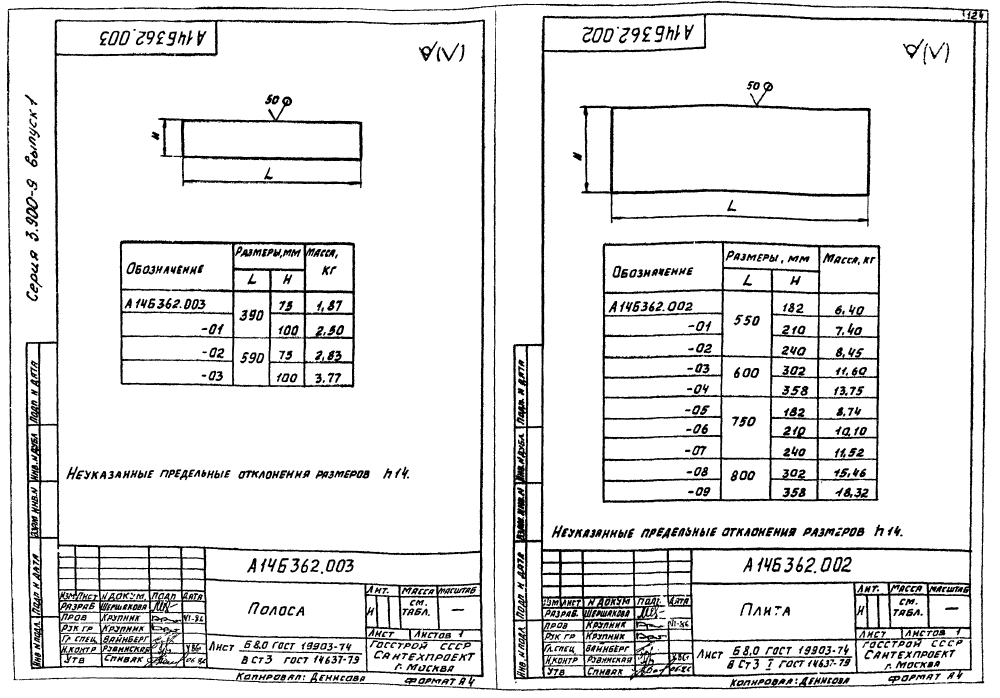 124
А14Б362.003
√(√)
Серия 3.900-9 выпуск 1
50
H
L
Обозначение Размеры, мм Масса, кг
L H
А14Б362.003 390 75 1,87
-01 100 2,50
-02 590 75 2,83
-03 100 3,77
Неуказанные предельные отклонения размеров h14.
Инв. № подл. Подп и дата Взам. инв. № Инв. № дубл. Подп и дата
А14Б362.003
Изм Лист № докум. Подп Дата
Разраб Шершакова
Пров Крупник VI-86
Рук гр Крупник
Гл спец. Вайнберг
Н.контр Рэвинская
Утв Спивак
Полоса
Лит. Масса Масштаб
И см. табл. —
Лист Листов 1
Лист Б 8.0 ГОСТ 19903-74
В Ст3 ГОСТ 14637-79
Госстрой СССР
Сантехпроект
г. Москва
Копировал: Денисова Формат А4
А14Б362.002
√(√)
50
H
L
Обозначение Размеры, мм Масса, кг
L H
А14Б362.002 550 182 6,40
-01 210 7,40
-02 240 8,45
-03 600 302 11,60
-04 358 13,75
-05 750 182 8,74
-06 210 10,10
-07 240 11,52
-08 800 302 15,46
-09 358 18,32
Неуказанные предельные отклонения размеров h14.
Инв. № подл. Подп и дата Взам. инв. № Инв. № дубл. Подп. и дата
А14Б362.002
Изм Лист № докум Подп. Дата
Разраб. Шершакова
Пров Крупник VI-86
Рук гр Крупник
Гл.спец. Вайнберг
Н.контр Рэвинская
Утв Спивак
Плита
Лит. Масса Масштаб
И см. табл. —
Лист Листов 1
Лист Б 8.0 ГОСТ 19903-74
В Ст3 I ГОСТ 14637-79
Госстрой СССР
Сантехпроект
г. Москва
Копировал: Денисова Формат А4